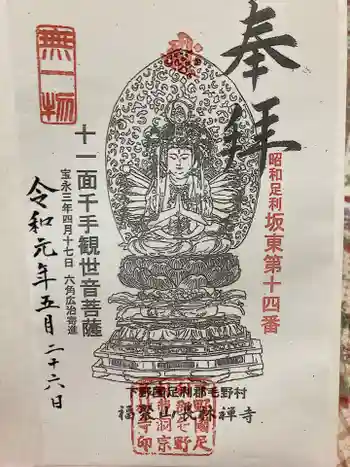 奉拝
昭和足利 坂東第十四番
無一物
十一面千手観世音菩薩
宝永三年四月十七日 六角広治寄進
令和元年五月二十六日
下野國足利郡毛野村
福聚山長林禅寺